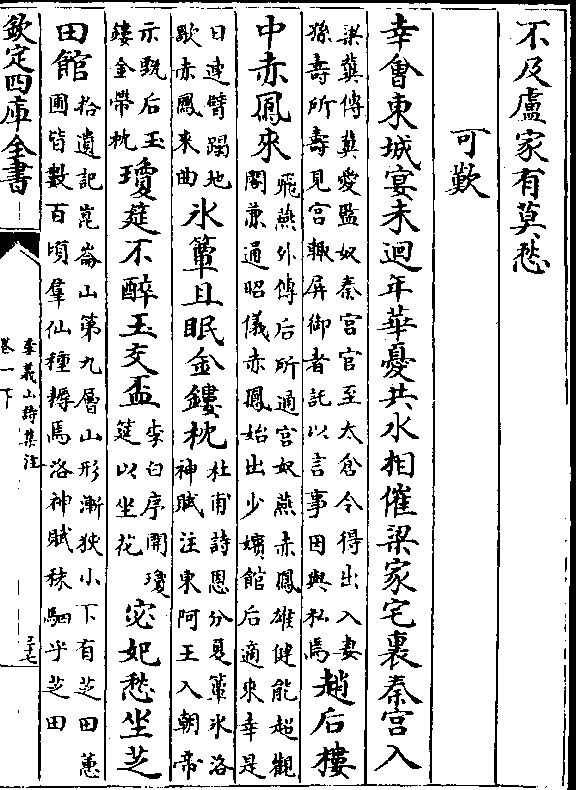 不及盧家有莫愁
可歎
幸會東城宴未迴年華憂共水相催梁家宅裏秦宫入
梁冀傳冀愛監奴秦宫官至太倉令得出入妻
孫壽所壽見宫輙屏御者託以言事因與私焉
趙后樓
中赤鳳來
飛燕外傳后所通宫奴燕赤鳳雄健能超觀
閣兼通昭儀赤鳳始出少嬪館后適來幸是
日連臂蹋地
歌赤鳳來曲
氷簟且眠金鏤枕
杜甫詩恩分夏簟氷洛
神賦注東阿王入朝帝
示甄后玉
鏤金帶枕
瓊筵不醉玉交盃
李白序開瓊
筵以坐花
宓妃愁坐芝
田館
拾遺記崑崙山第九層山形漸狹小下有芝田蕙
圃皆數百頃羣仙種耨焉洛神賦秣駟乎芝田
欽定四庫全書
李義山詩集注
卷一下